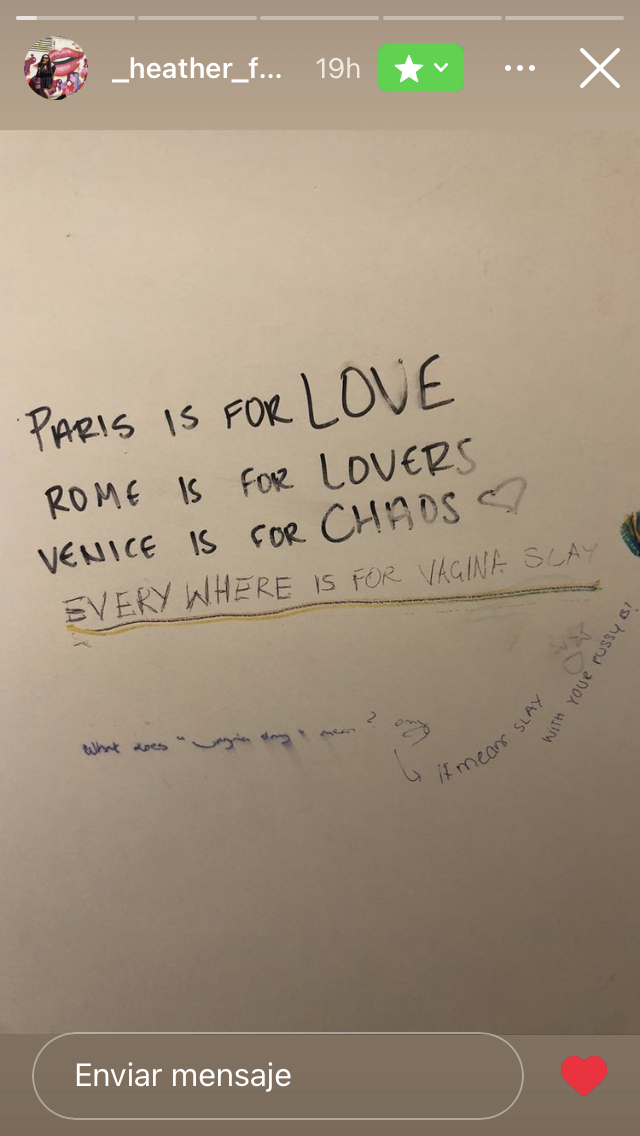 _heather_f...
19h
PARIS IS FOR LOVE
ROME IS FOR LOVERS
VENICE IS FOR CHAOS
EVERYWHERE IS FOR VAGINA SLAY
What does "vagina slay" mean? omg
it means SLAY WITH YOUR PUSSY
Enviar mensaje